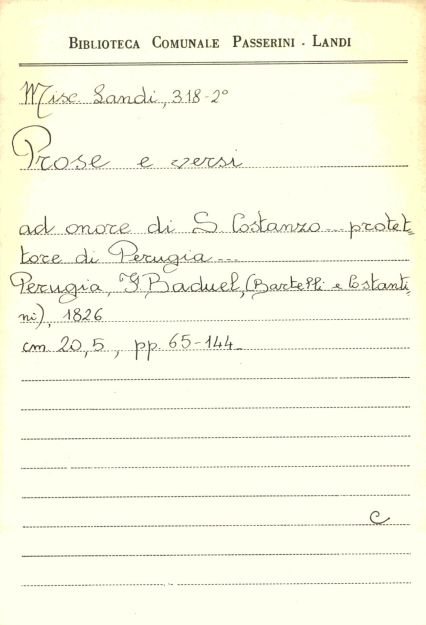 BIBLIOTECA COMUNALE PASSERINI - LANDI
Misc. Landi, 318-2°
Prose e versi
ad onore di S. Costanzo... protet=
tore di Perugia...
Perugia, F. Baduel, (Bartelli e Costanti=
ni), 1826
cm 20,5, pp. 65-144.
C